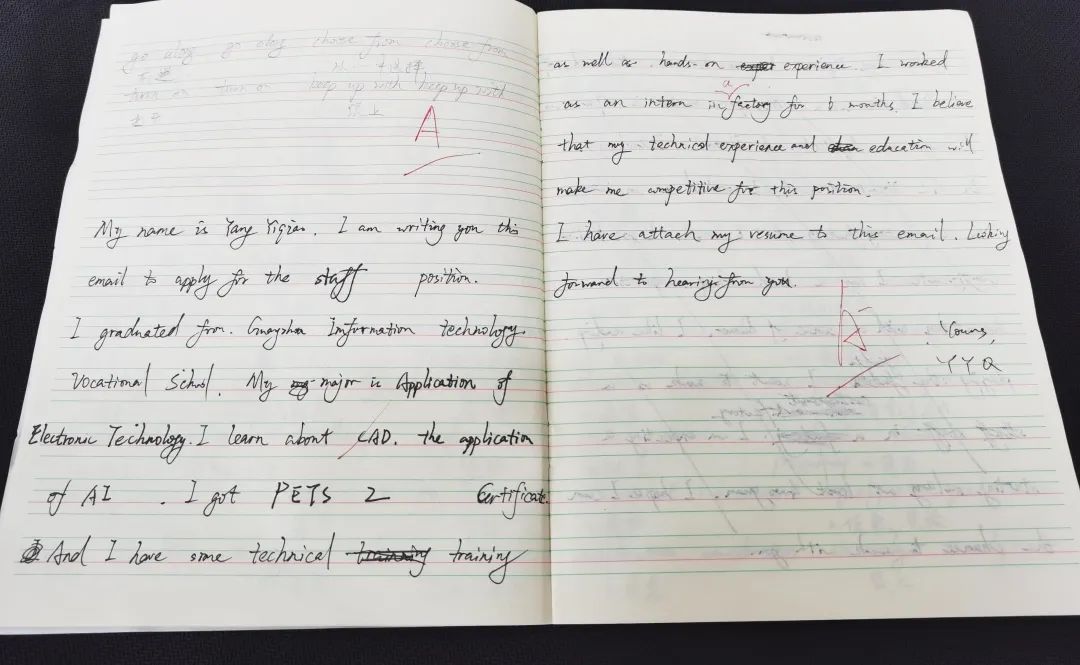 go along go along choose from choose from
从 中选择
turn on turn on keep up with keep up with
跟上
A
My name is Yang Yiqiao. I am writing you this
email to apply for the staff position.
I graduated from Information technology
Vocational School. My major is Application of
Electronic Technology. I learn about CAD. the application
of AI. I got PETS 2 Certificate.
And I have some technical training training
as well as hands-on experience. I worked
a
as an intern in factory for 6 months. I believe
that my technical experience and education will
make me competitive for this position.
I have attach my resume to this email. Looking
forward to hearing from you.
A-
Yours,
YYQ